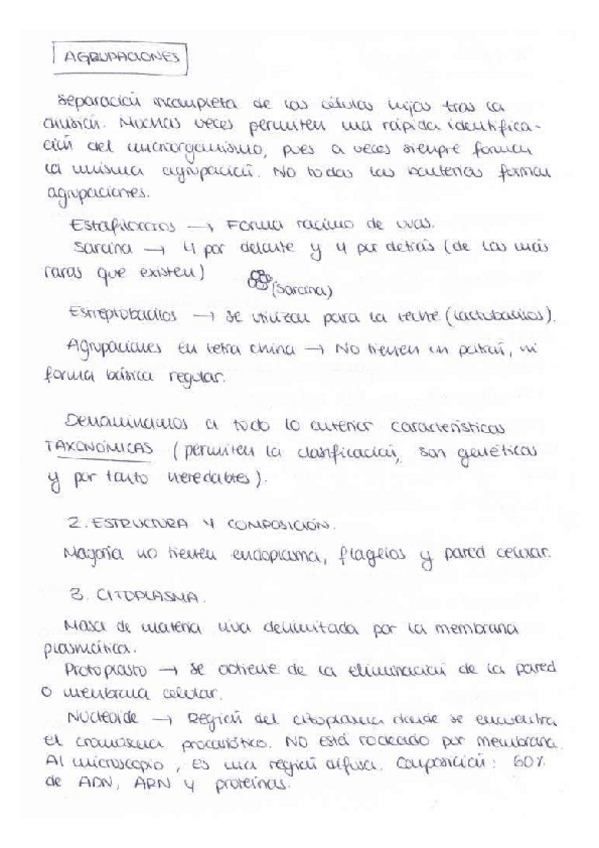 AGRUPACIONES
Separación incompleta de las células hijas tras la
división. Muchas veces permiten una rápida identifica-
ción del microorganismo, pues a veces siempre forman
la misma agrupación. No todas las bacterias forman
agrupaciones.
Estafilococos → Forma racimo de uvas.
Sarcina → 4 por delante y 4 por detrás (de las más
raras que existen)
(Sarcina)
Estreptobacilos → Se utilizan para la leche (lactobacilos).
Agrupaciones en letra china → No tienen un patrón, ni
forma básica regular.
Denominamos a todo lo anterior características
TAXONÓMICAS (permiten la clasificación, son genéticas
y por tanto heredables).
2. ESTRUCTURA Y COMPOSICIÓN.
Mayoría no tienen endoplasma, flagelos y pared celular.
3. CITOPLASMA.
Masa de materia viva delimitada por la membrana
plasmática.
Protoplasto → Se obtiene de la eliminación de la pared
o membrana celular.
Nucleoide → Región del citoplasma donde se encuentra
el cromosoma procariótico. No está rodeado por membrana.
Al microscopio, es una región difusa. Composición: 60%
de ADN, ARN y proteínas.